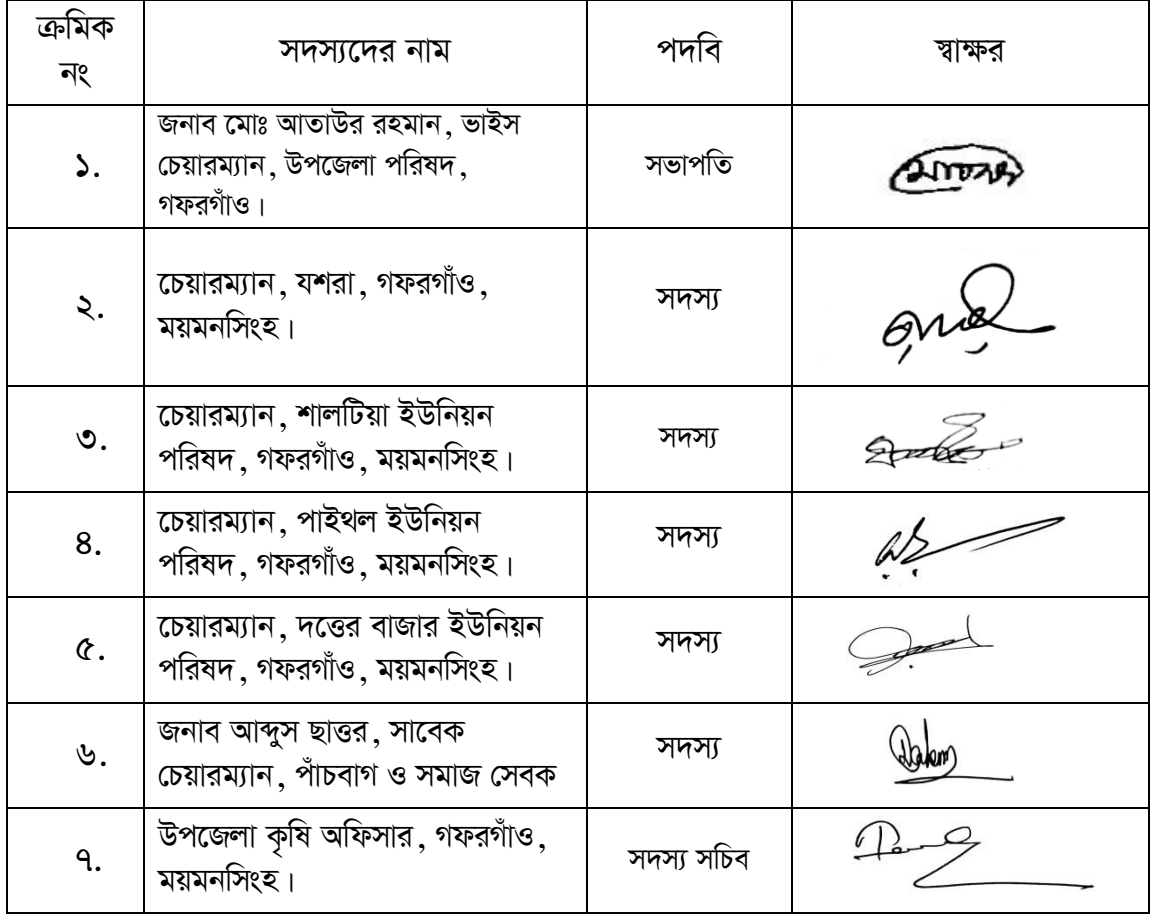 ক্রমিক নং
সদস্যদের নাম
পদবি
স্বাক্ষর
১.
জনাব মোঃ আতাউর রহমান, ভাইস
চেয়ারম্যান, উপজেলা পরিষদ,
গফরগাঁও।
সভাপতি
২.
চেয়ারম্যান, যশরা, গফরগাঁও,
ময়মনসিংহ।
সদস্য
৩.
চেয়ারম্যান, শালটিয়া ইউনিয়ন
পরিষদ, গফরগাঁও, ময়মনসিংহ।
সদস্য
৪.
চেয়ারম্যান, পাইথল ইউনিয়ন
পরিষদ, গফরগাঁও, ময়মনসিংহ।
সদস্য
৫.
চেয়ারম্যান, দত্তের বাজার ইউনিয়ন
পরিষদ, গফরগাঁও, ময়মনসিংহ।
সদস্য
৬.
জনাব আব্দুস ছাত্তর, সাবেক
চেয়ারম্যান, পাঁচবাগ ও সমাজ সেবক
সদস্য
৭.
উপজেলা কৃষি অফিসার, গফরগাঁও,
ময়মনসিংহ।
সদস্য সচিব